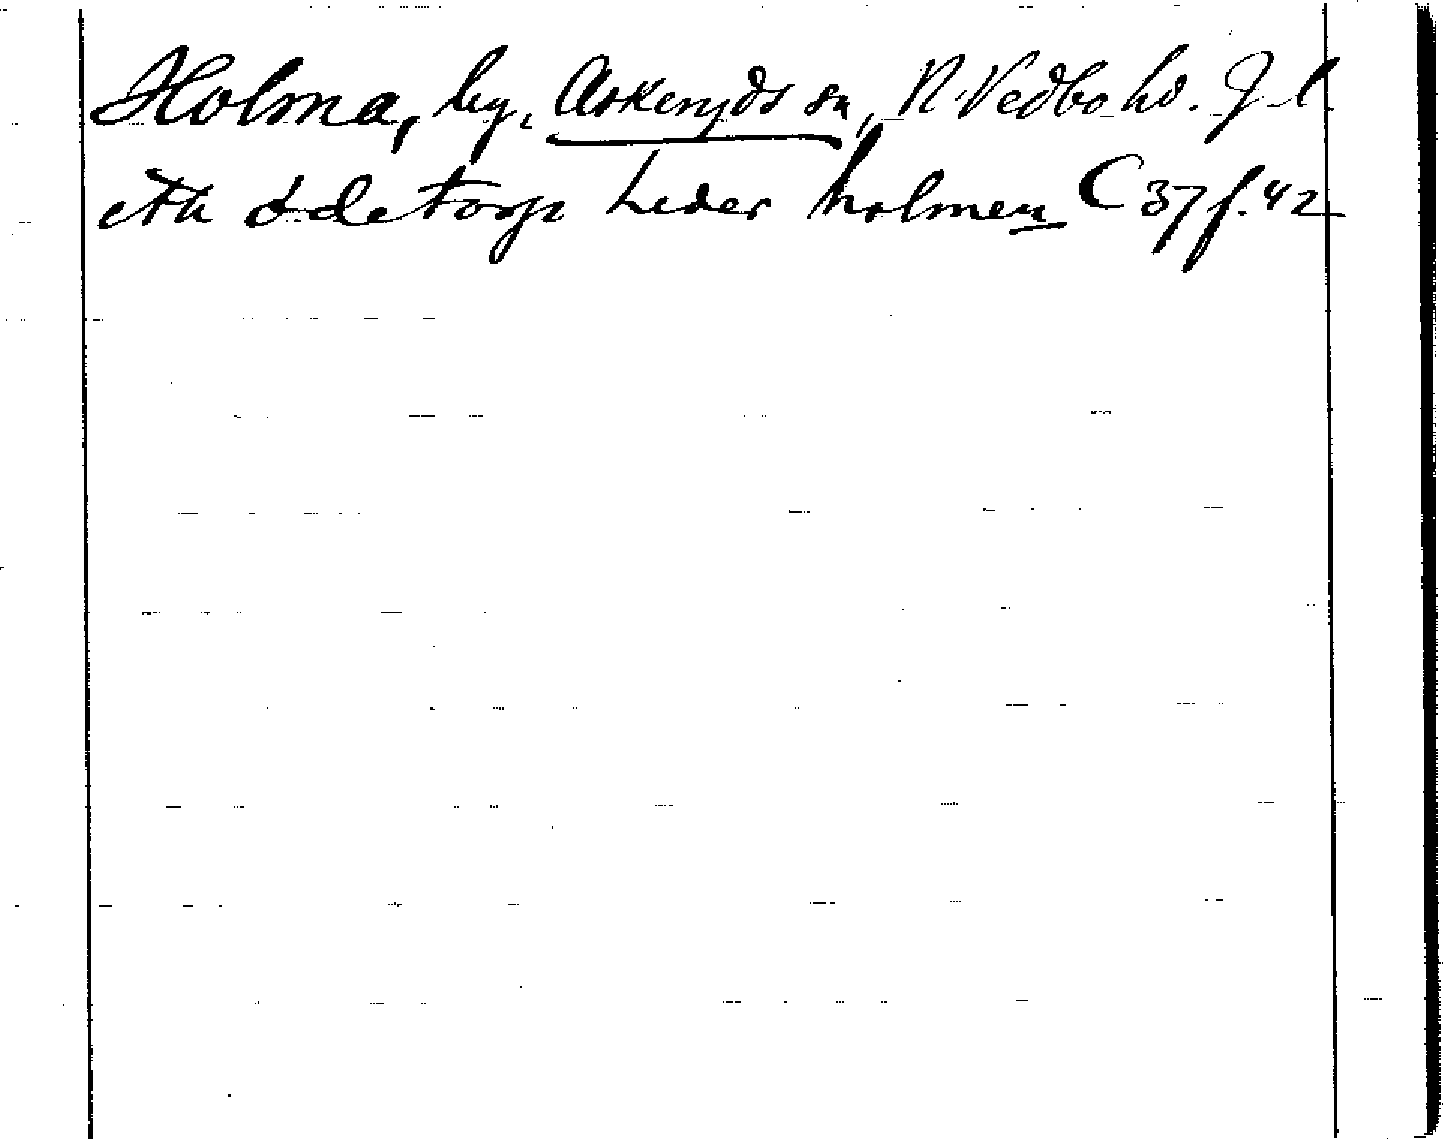 Holma, by, Askeryds sn, N. Vedbo hd. J. l.
eth ödetorp heder holmen C 37 f. 42